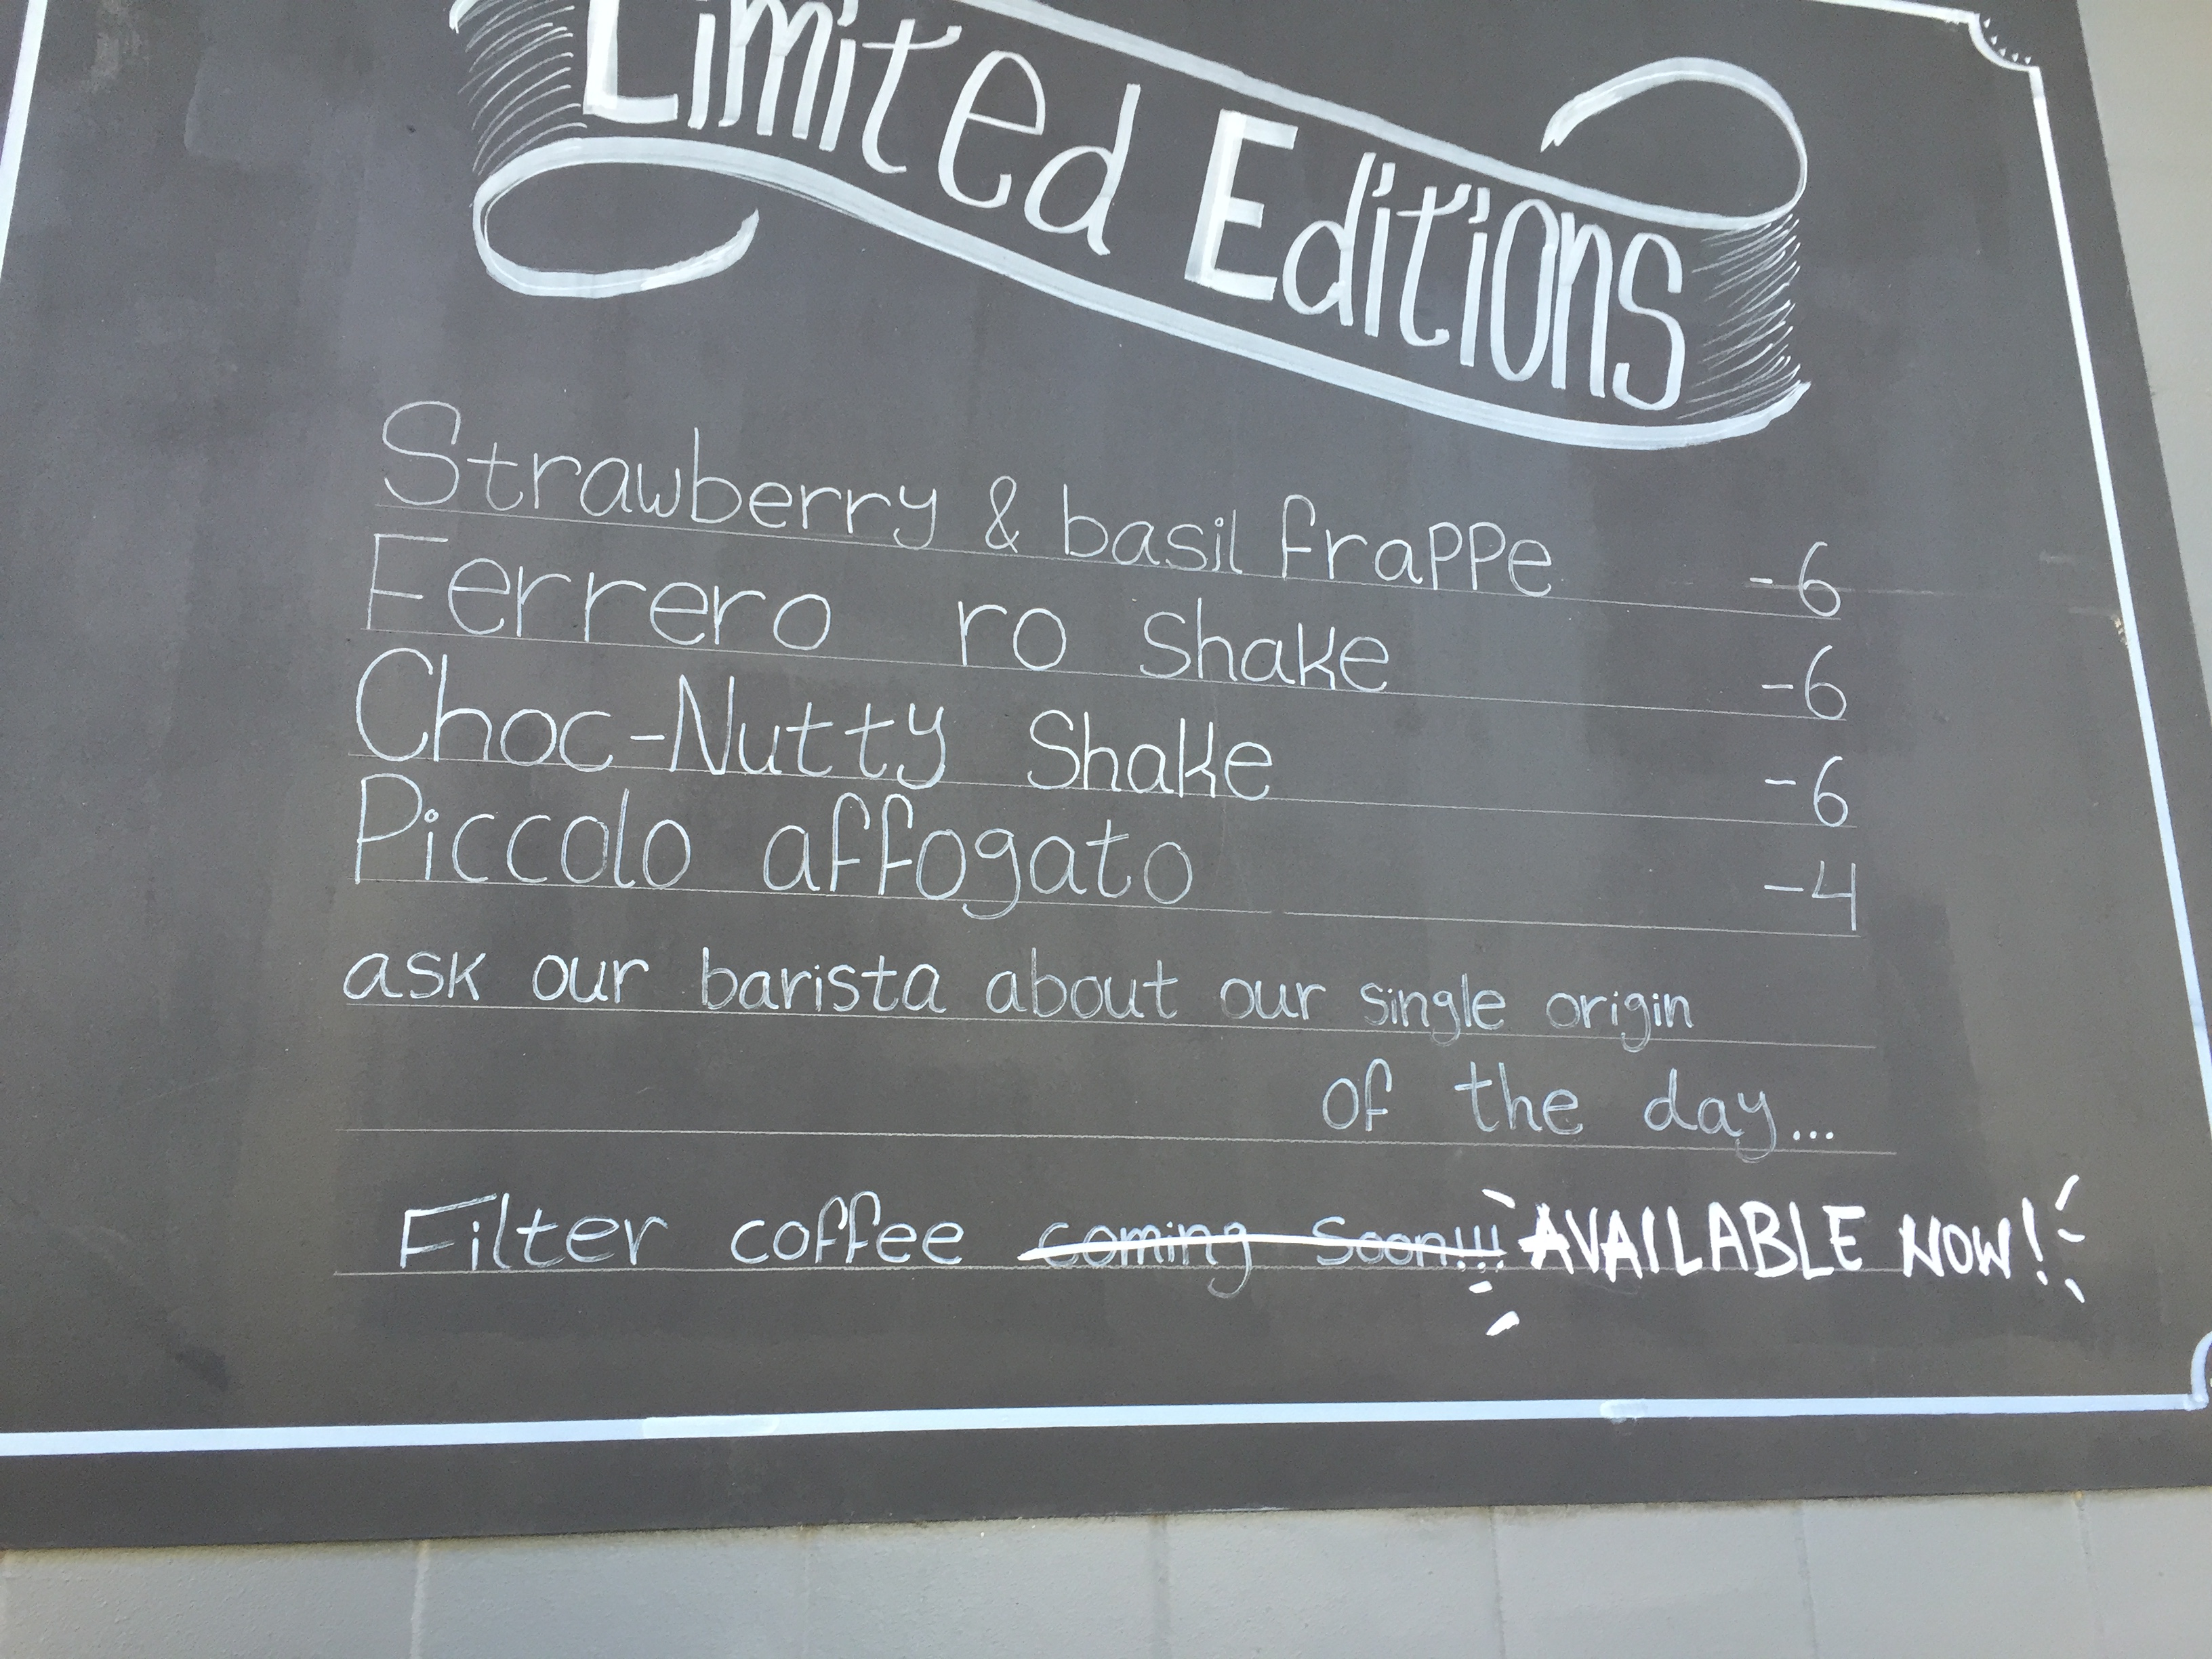 Limited Editions
Strawberry & basil frappe -6
Ferrero ro shake -6
Choc-Nutty Shake -6
Piccolo affogato -4
ask our barista about our single origin
of the day...
Filter coffee coming Soon!!! AVAILABLE NOW!